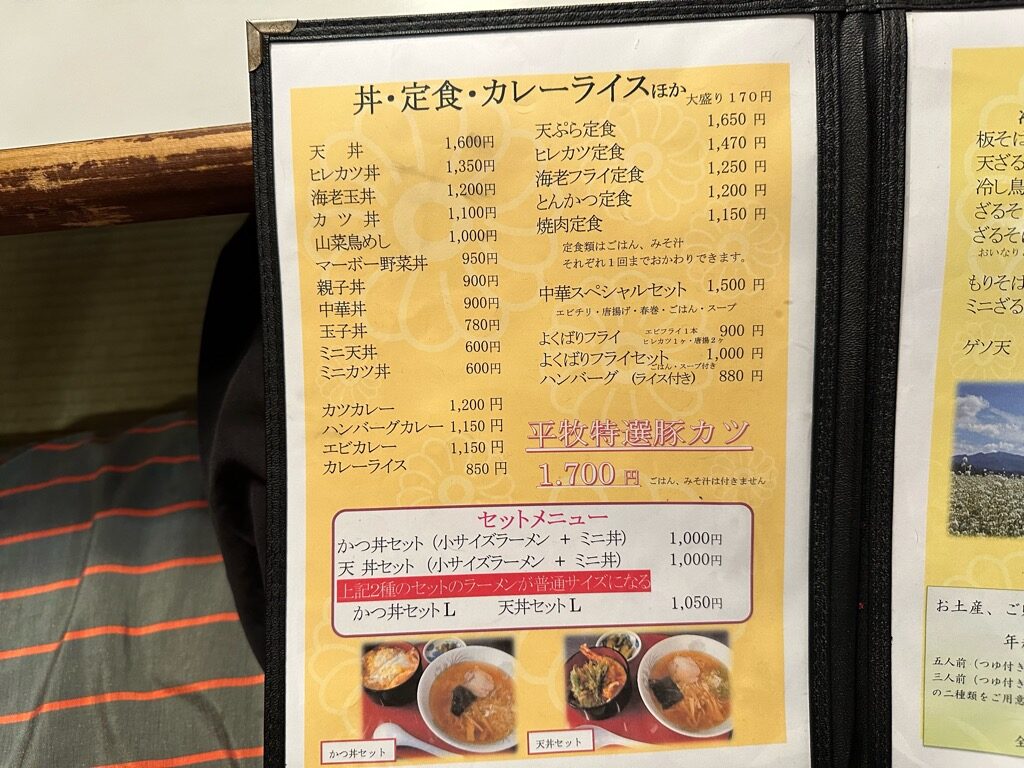 丼・定食・カレーライスほか 大盛り170円
天　丼 1,600円
ヒレカツ丼 1,350円
海老玉丼 1,200円
カ　ツ　丼 1,100円
山菜鳥めし 1,000円
マーボー野菜丼 950円
親子丼 900円
中華丼 900円
玉子丼 780円
ミニ天丼 600円
ミニカツ丼 600円
カツカレー 1,200 円
ハンバーグカレー 1,150 円
エビカレー 1,150 円
カレーライス 850 円
天ぷら定食 1,650 円
ヒレカツ定食 1,470 円
海老フライ定食 1,250 円
とんかつ定食 1,200 円
焼肉定食 1,150 円
定食類はごはん、みそ汁
それぞれ1回までおかわりできます。
中華スペシャルセット 1,500 円
エビチリ・唐揚げ・春巻・ごはん・スープ
よくばりフライ エビフライ1本 ヒレカツ1ヶ・唐揚2ヶ 900 円
よくばりフライセット 1,000 円
ごはん・スープ付き
ハンバーグ （ライス付き） 880 円
平牧特選豚カツ
1.700 円 ごはん、みそ汁は付きません
セットメニュー
かつ丼セット（小サイズラーメン ＋ ミニ丼） 1,000円
天 丼セット（小サイズラーメン ＋ ミニ丼） 1,000円
上記2種のセットのラーメンが普通サイズになる
かつ丼セットL 天丼セットL 1,050円
かつ丼セット
天丼セット
板そば
天ざる
冷し鳥
ざるそ
ざるそば
おいなり
もりそば
ミニざる
ゲソ天
お土産、ご
五人前（つゆ付き
三人前（つゆ付き
の二種類をご用意